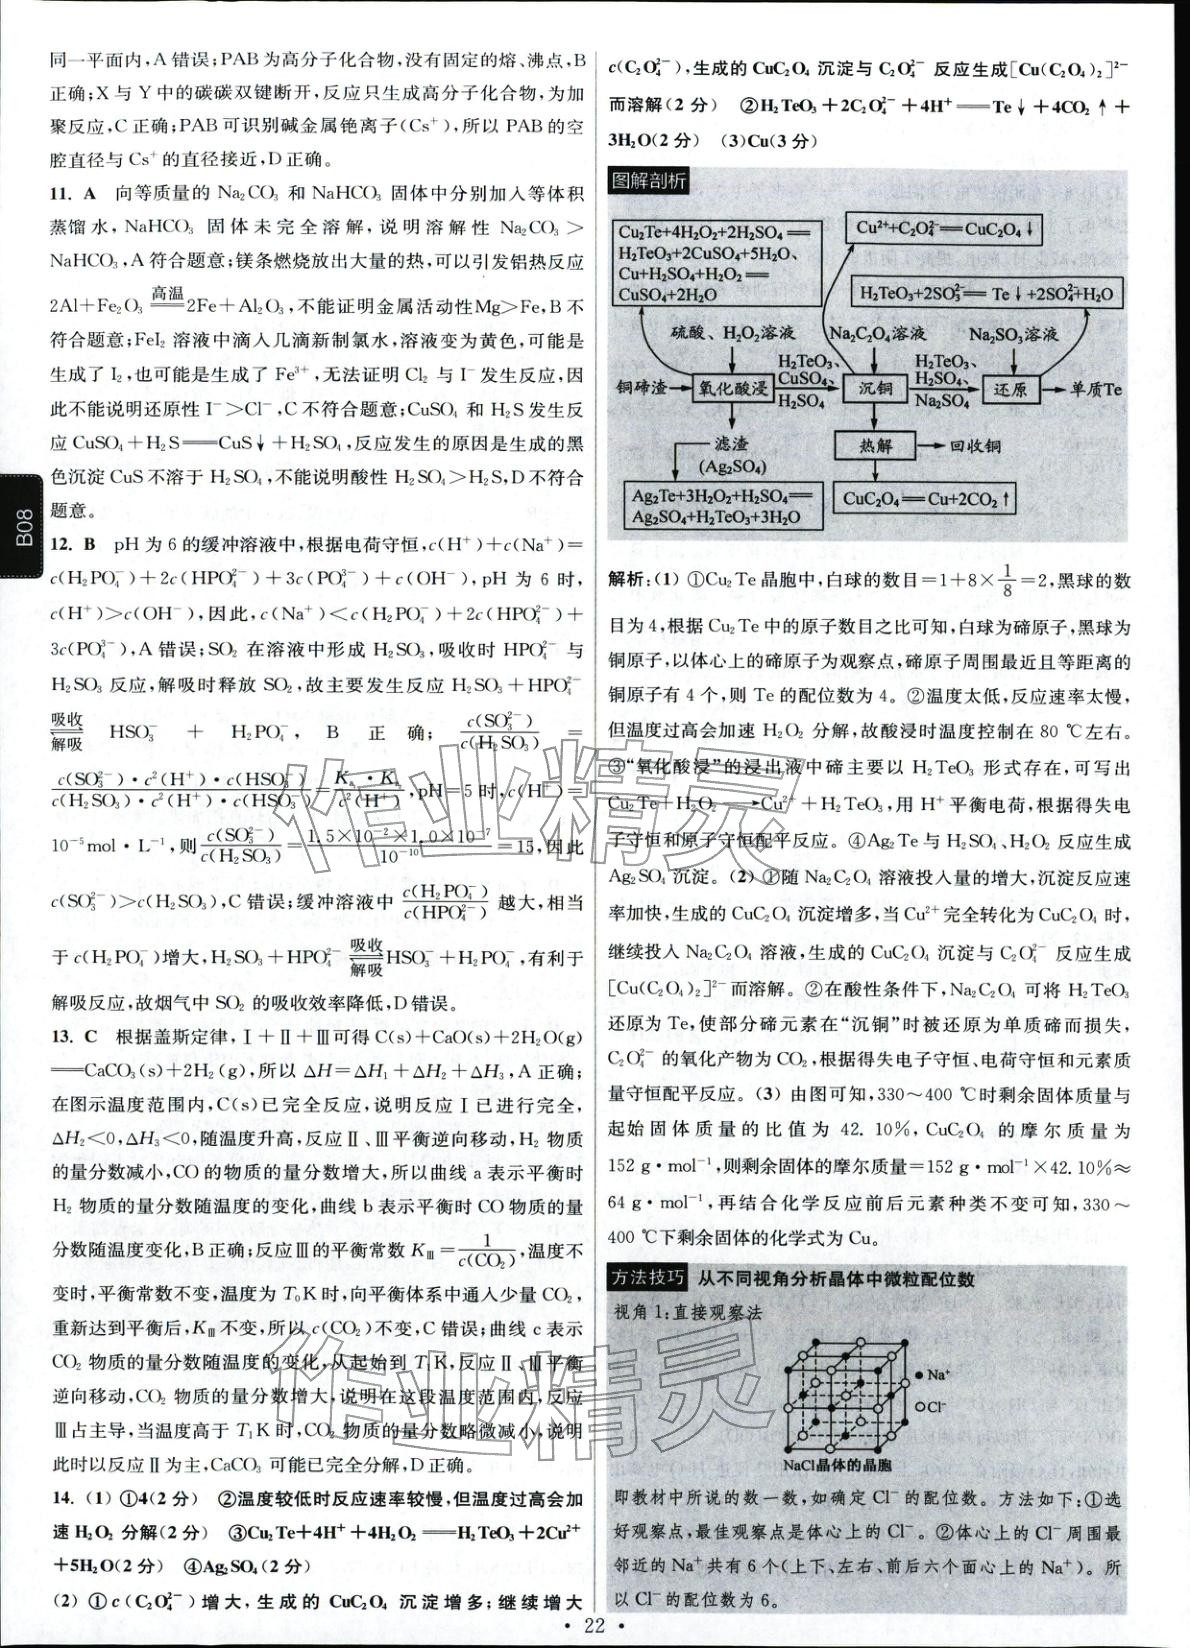 同一平面内,A错误;PAB为高分子化合物,没有固定的熔、沸点,B
正确;X与Y中的碳碳双键断开,反应只生成高分子化合物,为加
聚反应,C正确;PAB可识别碱金属铯离子(Cs⁺),所以PAB的空
腔直径与Cs⁺的直径接近,D正确。
11. A 向等质量的Na₂CO₃和NaHCO₃固体中分别加入等体积
蒸馏水,NaHCO₃固体未完全溶解,说明溶解性Na₂CO₃>
NaHCO₃,A符合题意;镁条燃烧放出大量的热,可以引发铝热反应
2Al+Fe₂O₃ 高温══ 2Fe+Al₂O₃,不能证明金属活动性Mg>Fe,B不
符合题意;FeI₂溶液中滴入几滴新制氯水,溶液变为黄色,可能是
生成了I₂,也可能是生成了Fe³⁺,无法证明Cl₂与I⁻发生反应,因
此不能说明还原性I⁻>Cl⁻,C不符合题意;CuSO₄和H₂S发生反
应CuSO₄+H₂S══CuS↓+H₂SO₄,反应发生的原因是生成的黑
色沉淀CuS不溶于H₂SO₄,不能说明酸性H₂SO₄>H₂S,D不符合
题意。
12. B pH为6的缓冲溶液中,根据电荷守恒,c(H⁺)+c(Na⁺)=
c(H₂PO₄⁻)+2c(HPO₄²⁻)+3c(PO₄³⁻)+c(OH⁻),pH为6时,
c(H⁺)>c(OH⁻),因此,c(Na⁺)<c(H₂PO₄⁻)+2c(HPO₄²⁻)+
3c(PO₄³⁻),A错误;SO₂在溶液中形成H₂SO₃,吸收时HPO₄²⁻与
H₂SO₃反应,解吸时释放SO₂,故主要发生反应H₂SO₃+HPO₄²⁻
吸收⇌解吸 HSO₃⁻+H₂PO₄⁻,B正确;c(SO₃²⁻)/c(H₂SO₃)=
c(SO₃²⁻)·c²(H⁺)·c(HSO₃⁻)/c(H₂SO₃)·c²(H⁺)·c(HSO₃⁻)=Kₐ·Kₐ/c²(H⁺),pH=5时,c(H⁺)=
10⁻⁵mol·L⁻¹,则c(SO₃²⁻)/c(H₂SO₃)=1.5×10⁻²×1.0×10⁻⁷/10⁻¹⁰=15,因此
c(SO₃²⁻)>c(H₂SO₃),C错误;缓冲溶液中c(H₂PO₄⁻)/c(HPO₄²⁻)越大,相当
于c(H₂PO₄⁻)增大,H₂SO₃+HPO₄²⁻ 吸收⇌解吸 HSO₃⁻+H₂PO₄⁻,有利于
解吸反应,故烟气中SO₂的吸收效率降低,D错误。
13. C 根据盖斯定律,Ⅰ+Ⅱ+Ⅲ可得C(s)+CaO(s)+2H₂O(g)
══CaCO₃(s)+2H₂(g),所以ΔH=ΔH₁+ΔH₂+ΔH₃,A正确;
在图示温度范围内,C(s)已完全反应,说明反应Ⅰ已进行完全,
ΔH₂<0,ΔH₃<0,随温度升高,反应Ⅱ、Ⅲ平衡逆向移动,H₂物质
的量分数减小,CO的物质的量分数增大,所以曲线a表示平衡时
H₂物质的量分数随温度的变化,曲线b表示平衡时CO物质的量
分数随温度变化,B正确;反应Ⅲ的平衡常数K_Ⅲ=1/c(CO₂),温度不
变时,平衡常数不变,温度为T₀K时,向平衡体系中通入少量CO₂,
重新达到平衡后,K_Ⅲ不变,所以c(CO₂)不变,C错误;曲线c表示
CO₂物质的量分数随温度的变化,从起始到T₁K,反应Ⅱ、Ⅲ平衡
逆向移动,CO₂物质的量分数增大,说明在这段温度范围内,反应
Ⅲ占主导,当温度高于T₁K时,CO₂物质的量分数略微减小,说明
此时以反应Ⅱ为主,CaCO₃可能已完全分解,D正确。
14. (1) ①4(2分) ②温度较低时反应速率较慢,但温度过高会加
速H₂O₂分解(2分) ③Cu₂Te+4H⁺+4H₂O₂══H₂TeO₃+2Cu²⁺
+5H₂O(2分) ④Ag₂SO₄(2分)
(2) ①c(C₂O₄²⁻)增大,生成的CuC₂O₄沉淀增多;继续增大
c(C₂O₄²⁻),生成的CuC₂O₄沉淀与C₂O₄²⁻反应生成[Cu(C₂O₄)₂]²⁻
而溶解(2分) ②H₂TeO₃+2C₂O₄²⁻+4H⁺══Te↓+4CO₂↑+
3H₂O(2分) (3)Cu(3分)
图解剖析
Cu₂Te+4H₂O₂+2H₂SO₄══
H₂TeO₃+2CuSO₄+5H₂O、
Cu+H₂SO₄+H₂O₂══
CuSO₄+2H₂O
Cu²⁺+C₂O₄²⁻══CuC₂O₄↓
H₂TeO₃+2SO₃²⁻══Te↓+2SO₄²⁻+H₂O
硫酸、H₂O₂溶液 Na₂C₂O₄溶液 Na₂SO₃溶液
铜碲渣 氧化酸浸 H₂TeO₃、CuSO₄、H₂SO₄ 沉铜 H₂TeO₃、H₂SO₄、Na₂SO₄ 还原 单质Te
滤渣 (Ag₂SO₄) 热解 回收铜
Ag₂Te+3H₂O₂+H₂SO₄══
Ag₂SO₄+H₂TeO₃+3H₂O
CuC₂O₄══Cu+2CO₂↑
解析:(1) ①Cu₂Te晶胞中,白球的数目=1+8×1/8=2,黑球的数
目为4,根据Cu₂Te中的原子数目之比可知,白球为碲原子,黑球为
铜原子,以体心上的碲原子为观察点,碲原子周围最近且等距离的
铜原子有4个,则Te的配位数为4。②温度太低,反应速率太慢,
但温度过高会加速H₂O₂分解,故酸浸时温度控制在80℃左右。
③“氧化酸浸”的浸出液中碲主要以H₂TeO₃形式存在,可写出
Cu₂Te+H₂O₂→Cu²⁺+H₂TeO₃,用H⁺平衡电荷,根据得失电
子守恒和原子守恒配平反应。④Ag₂Te与H₂SO₄、H₂O₂反应生成
Ag₂SO₄沉淀。(2) ①随Na₂C₂O₄溶液投入量的增大,沉淀反应速
率加快,生成的CuC₂O₄沉淀增多,当Cu²⁺完全转化为CuC₂O₄时,
继续投入Na₂C₂O₄溶液,生成的CuC₂O₄沉淀与C₂O₄²⁻反应生成
[Cu(C₂O₄)₂]²⁻而溶解。②在酸性条件下,Na₂C₂O₄可将H₂TeO₃
还原为Te,使部分碲元素在“沉铜”时被还原为单质碲而损失,
C₂O₄²⁻的氧化产物为CO₂,根据得失电子守恒、电荷守恒和元素质
量守恒配平反应。(3) 由图可知,330~400℃时剩余固体质量与
起始固体质量的比值为42.10%,CuC₂O₄的摩尔质量为
152 g·mol⁻¹,则剩余固体的摩尔质量=152 g·mol⁻¹×42.10%≈
64 g·mol⁻¹,再结合化学反应前后元素种类不变可知,330~
400℃下剩余固体的化学式为Cu。
方法技巧 从不同视角分析晶体中微粒配位数
视角1:直接观察法
Na⁺
Cl⁻
NaCl晶体的晶胞
即教材中所说的数一数,如确定Cl⁻的配位数。方法如下:①选
好观察点,最佳观察点是体心上的Cl⁻。②体心上的Cl⁻周围最
邻近的Na⁺共有6个(上下、左右、前后六个面心上的Na⁺)。所
以Cl⁻的配位数为6。
B08
·22·
作业精灵
作业精灵